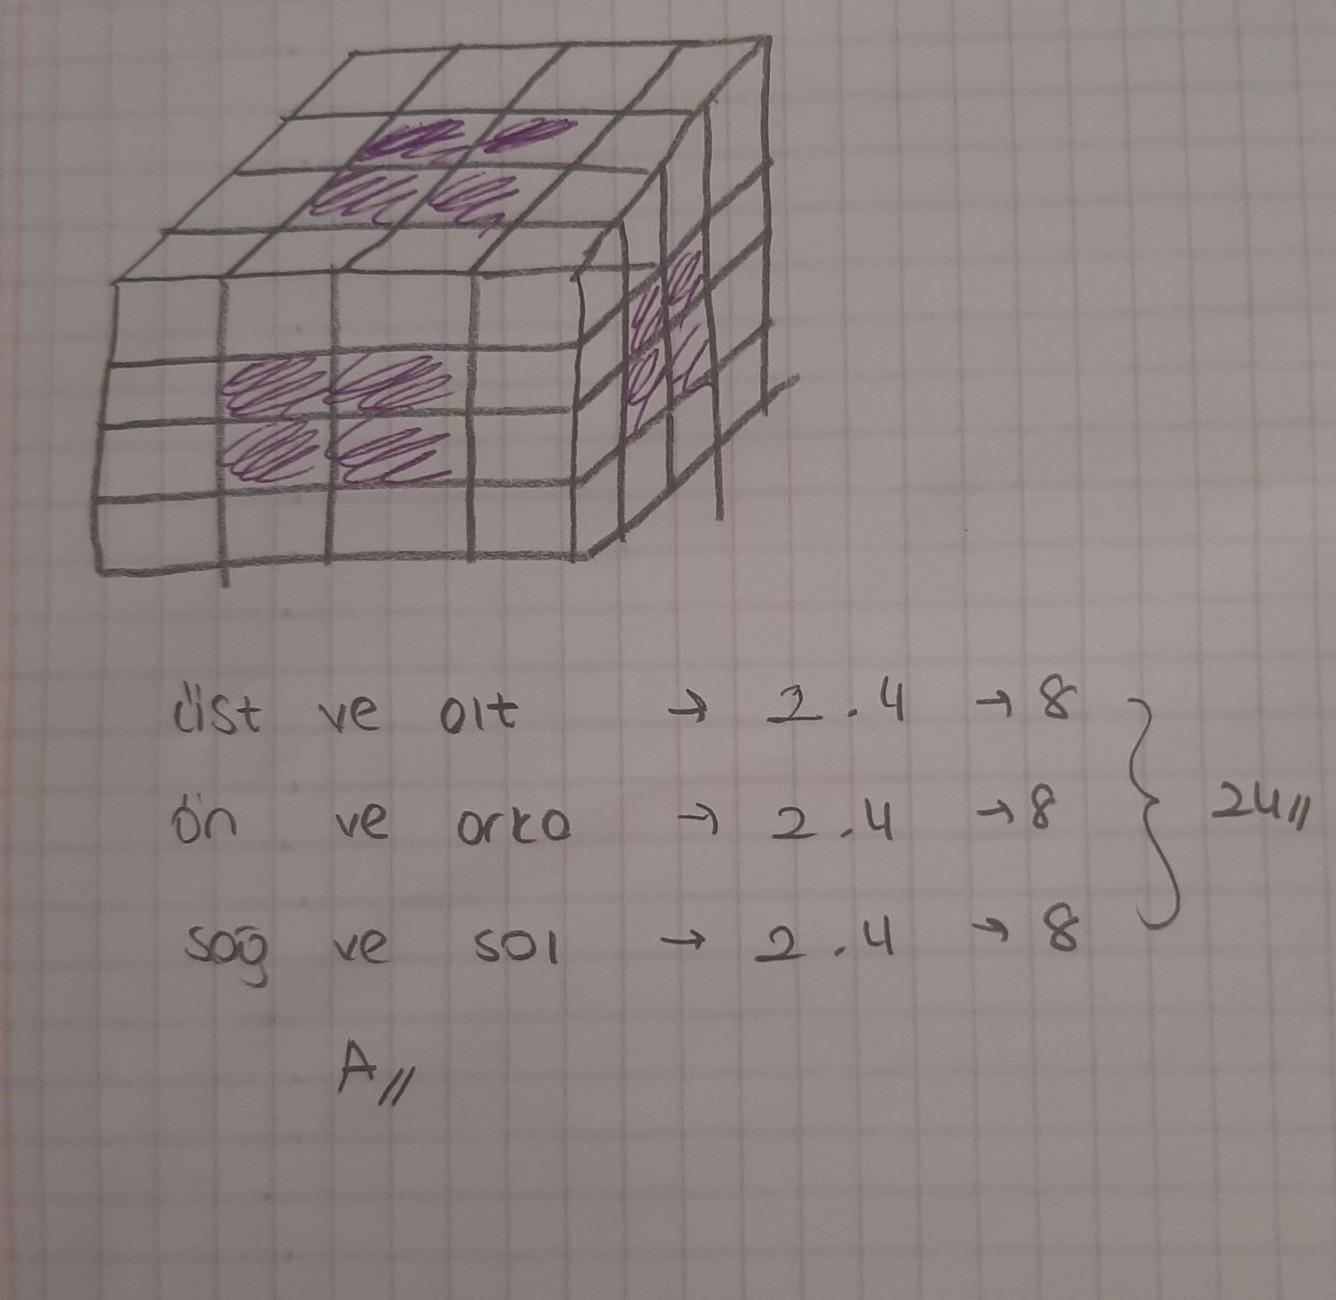 üst ve alt → 2.4 → 8
ön ve arka → 2.4 → 8 } 24//
sağ ve sol → 2.4 → 8
A//